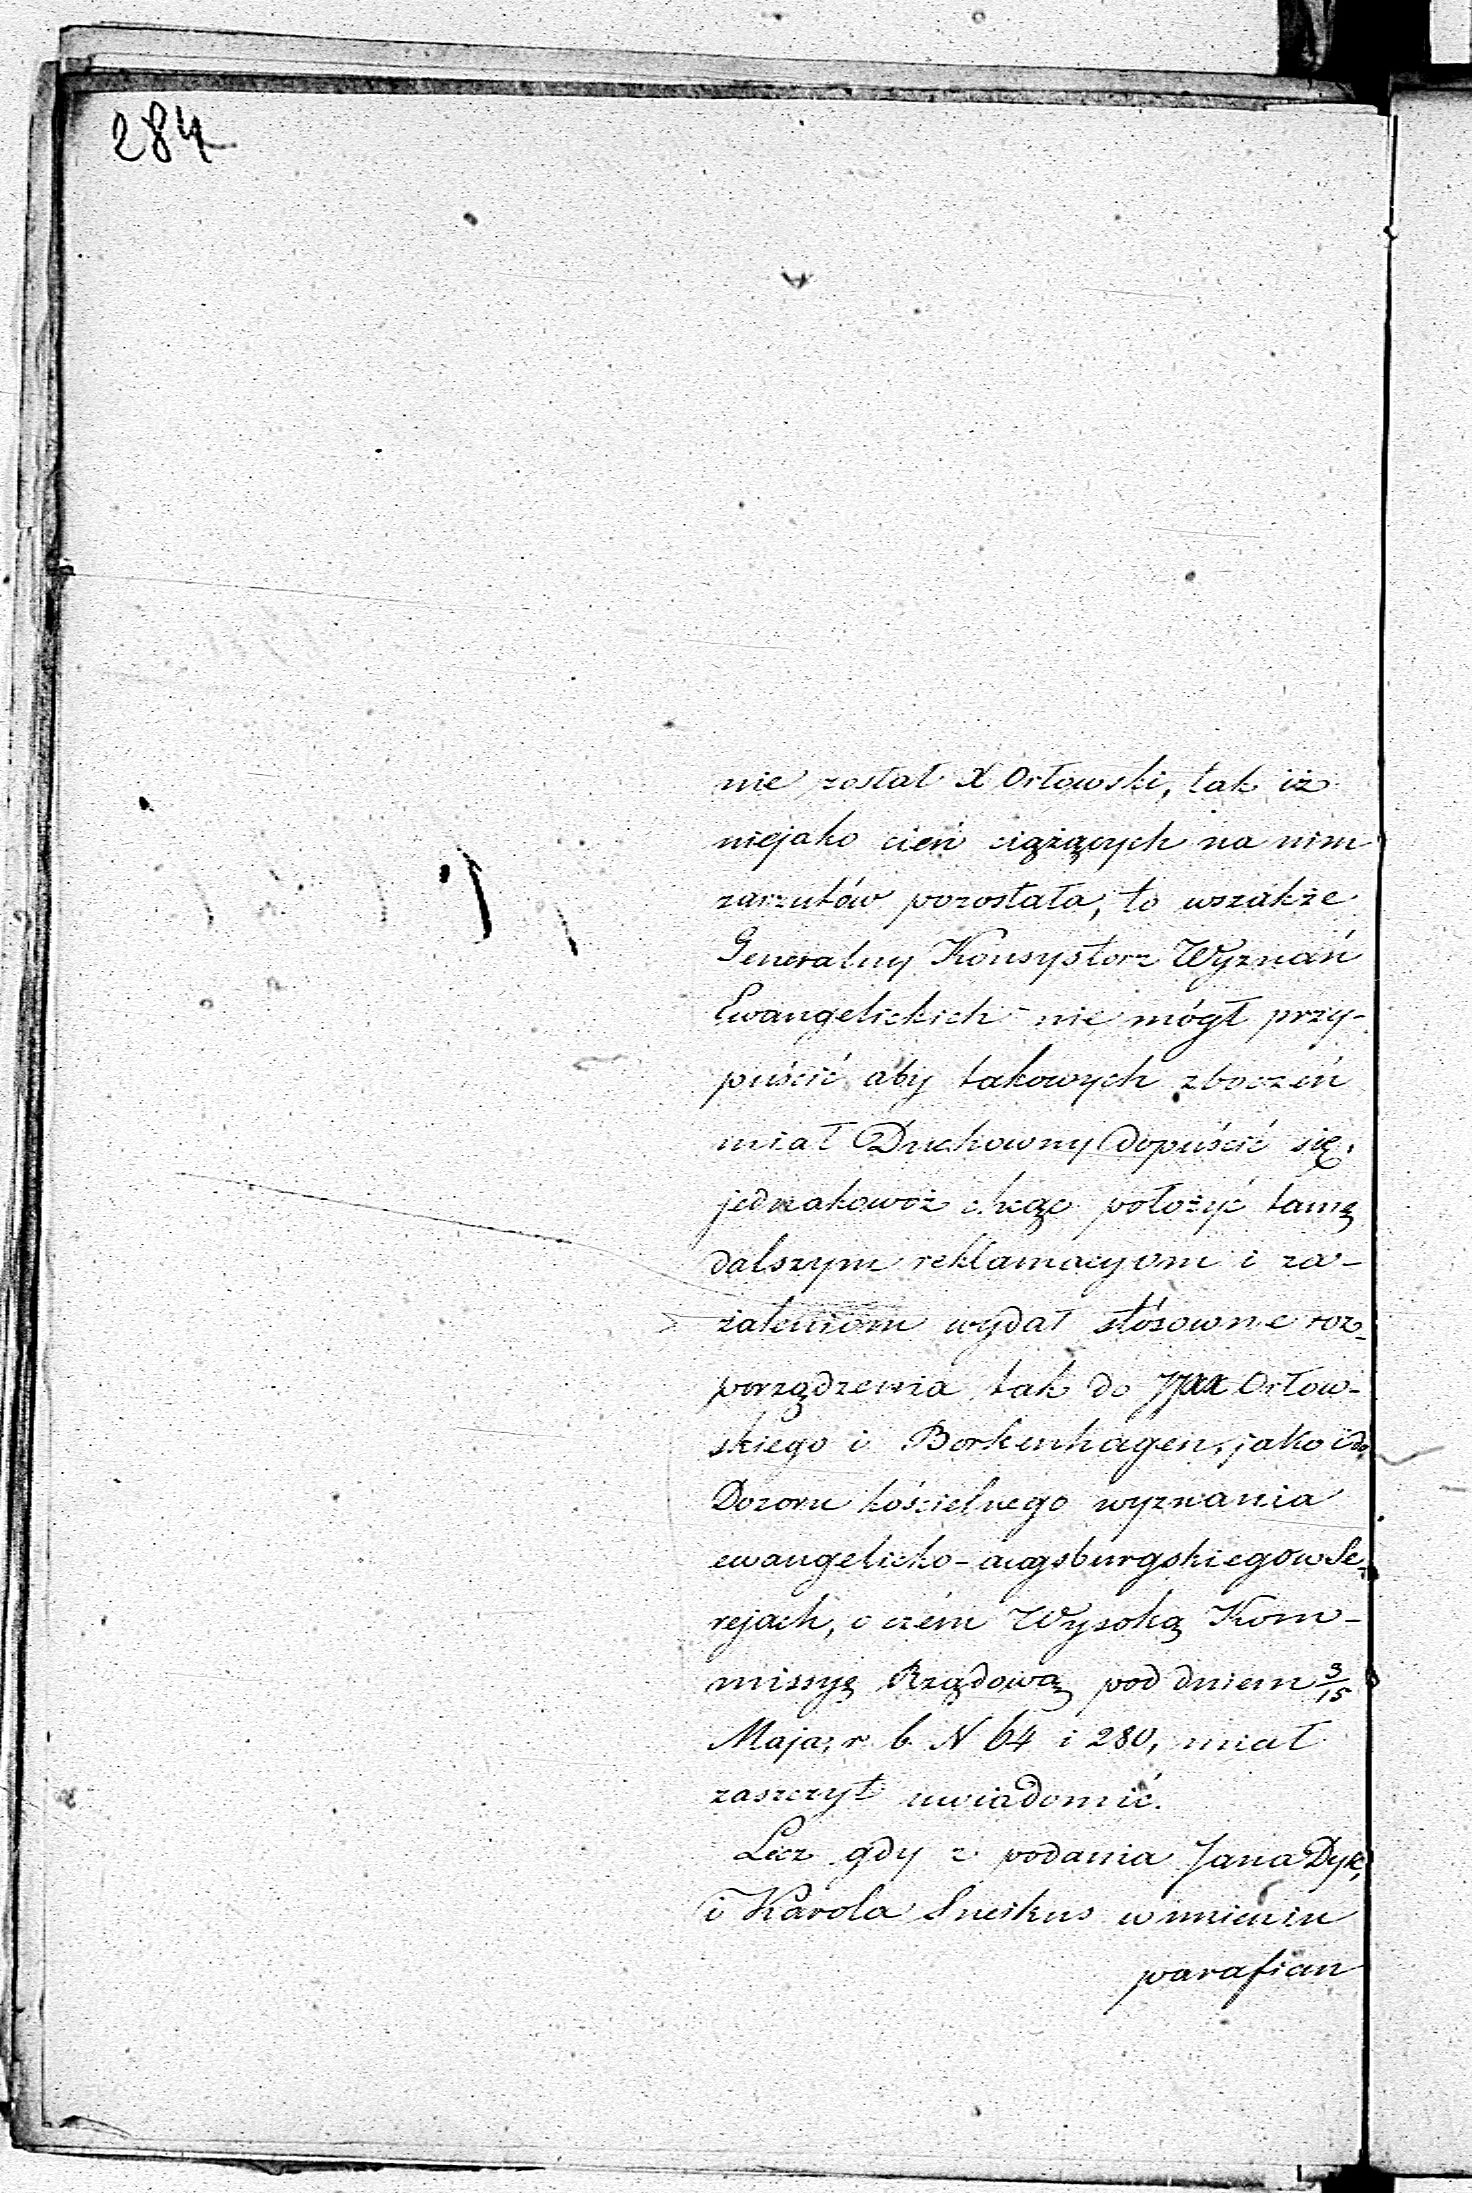 284
nie został X Orłowski, tak iż
niejako cień ciążących na nim
zarzutów pozostała, to wszakże
Generalny Konsystorz Wyznań
Ewangelickich nie mógł przy-
puścić aby takowych zboczeń
miał Duchowny dopuścić się,
jednakowoż chcąc położyć tamę
dalszym reklamacyom i za-
żaleniom wydał stósowne roz-
porządzenia tak do JJXX Orłow-
skiego i Borkenhagen, jako i do
Dozoru kościelnego wyznania
ewangelicko-augsburgskiego w Se-
rejach, o czém Wysoką Kom-
missyę Rządową pod dniem 3/15
Maja, r b N 64 i 280, miał
zaszczyt uwiadomić.
Lecz gdy z podania Jana Dyk,
i Karola Sneikus w imieniu
parafian